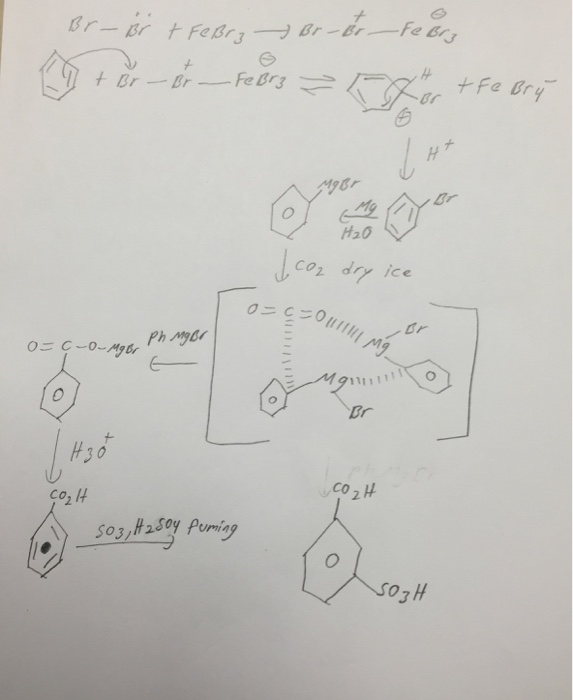 Br – Br + FeBr3 → Br – Br⁺ – FeBr3 ⊖
+ Br – Br⁺ – FeBr3 ⊖ ⇌ H Br ⊕ + FeBr4⁻
H⁺
MgBr Mg H2O Br
CO2 dry ice
O=C=O Mg Br
O=C–O–MgBr Ph MgBr
Mg Br
H3O⁺
CO2H SO3, H2SO4 fuming CO2H
SO3H